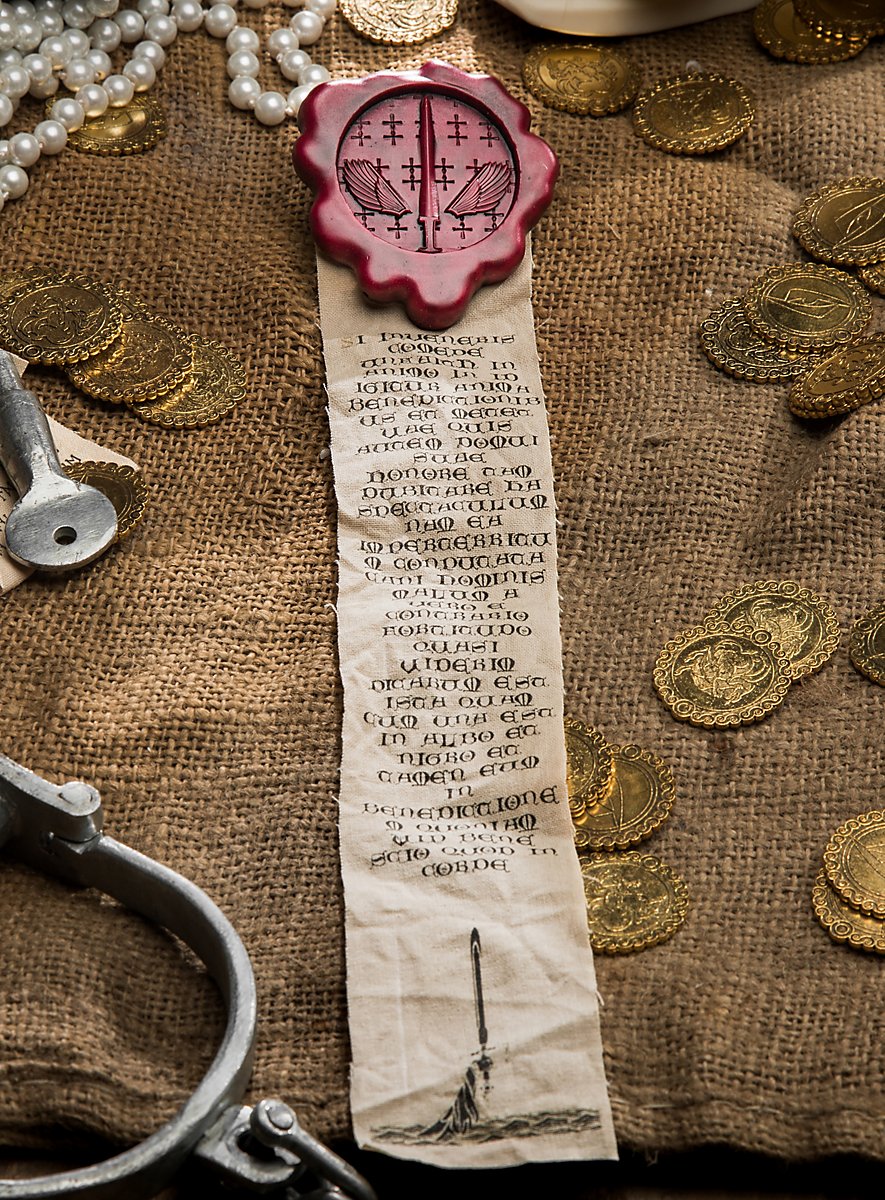 SI INVENERIS
COMEDE
ANIMO
IGITUR ANIMA
BENEDICTIONIB
US ET METET
VAE QUIS
AUTEM DOMUI
SUAE
HONORE TAM
DUBITARE HA
SPECTACULUM
NAM EA
IMPERTERRITU
M CONDUCATA
CANI DOMINIS
MALUM A
VERO E
CONTRARIO
FORTITUDO
QUASI
VIDERIM
DICATUM EST
ISTA QUAM
CUM UNA EST
IN ALBO ET
NIGRO ET
TAMEN ETIM
IN
BENEDICTIONE
M QUONIAM
VID BENE
SCIO QUOD IN
CORDE